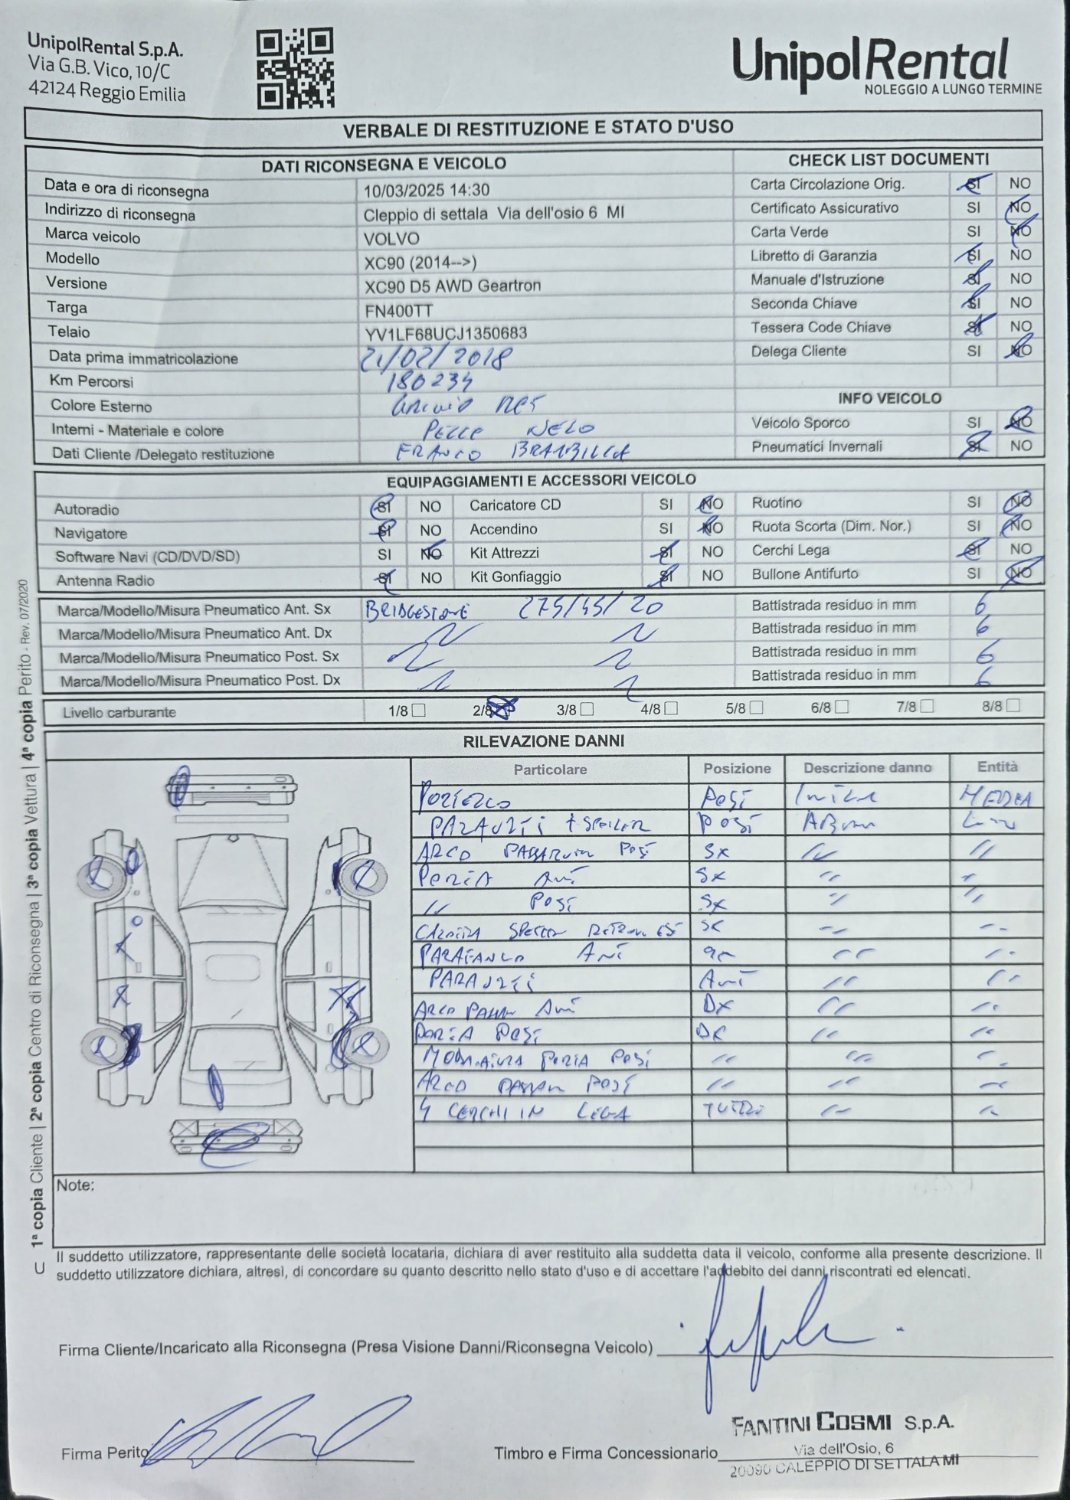 UnipolRental S.p.A.
Via G.B. Vico, 10/C
42124 Reggio Emilia
UnipolRental
NOLEGGIO A LUNGO TERMINE
VERBALE DI RESTITUZIONE E STATO D'USO
DATI RICONSEGNA E VEICOLO
Data e ora di riconsegna 10/03/2025 14:30
Indirizzo di riconsegna Cleppio di settala Via dell'osio 6 MI
Marca veicolo VOLVO
Modello XC90 (2014-->)
Versione XC90 D5 AWD Geartron
Targa FN400TT
Telaio YV1LF68UCJ1350683
Data prima immatricolazione 21/02/2018
Km Percorsi 180234
Colore Esterno
Interni - Materiale e colore PELLE NERO
Dati Cliente /Delegato restituzione FRANCO BRAMBILLA
CHECK LIST DOCUMENTI
Carta Circolazione Orig. SI NO
Certificato Assicurativo SI NO
Carta Verde SI NO
Libretto di Garanzia SI NO
Manuale d'Istruzione SI NO
Seconda Chiave SI NO
Tessera Code Chiave SI NO
Delega Cliente SI NO
INFO VEICOLO
Veicolo Sporco SI NO
Pneumatici Invernali SI NO
EQUIPAGGIAMENTI E ACCESSORI VEICOLO
Autoradio SI NO Caricatore CD SI NO Ruotino SI NO
Navigatore SI NO Accendino SI NO Ruota Scorta (Dim. Nor.) SI NO
Software Navi (CD/DVD/SD) SI NO Kit Attrezzi SI NO Cerchi Lega SI NO
Antenna Radio SI NO Kit Gonfiaggio SI NO Bullone Antifurto SI NO
Marca/Modello/Misura Pneumatico Ant. Sx BRIDGESTONE 275/45/20 Battistrada residuo in mm 6
Marca/Modello/Misura Pneumatico Ant. Dx Battistrada residuo in mm 6
Marca/Modello/Misura Pneumatico Post. Sx Battistrada residuo in mm 6
Marca/Modello/Misura Pneumatico Post. Dx Battistrada residuo in mm 6
Livello carburante 1/8 2/8 3/8 4/8 5/8 6/8 7/8 8/8
RILEVAZIONE DANNI
Particolare Posizione Descrizione danno Entità
POST MEDIA
PARAURTI + SPOILER POST
ARCO POST SX " "
PORTA ANT SX " "
" POST SX " "
CALOTTA SPECCHIO SX " "
PARAFANGO ANT " "
PARAURTI ANT " "
ARCO ANT DX " "
PORTA POST DX " "
MODANATURA PORTA POST " " "
ARCO POST " " "
4 CERCHI IN LEGA TUTTI " "
Note:
Il suddetto utilizzatore, rappresentante delle società locataria, dichiara di aver restituito alla suddetta data il veicolo, conforme alla presente descrizione. Il
suddetto utilizzatore dichiara, altresì, di concordare su quanto descritto nello stato d'uso e di accettare l'addebito dei danni riscontrati ed elencati.
Firma Cliente/Incaricato alla Riconsegna (Presa Visione Danni/Riconsegna Veicolo)
Firma Perito
Timbro e Firma Concessionario
FANTINI COSMI S.p.A.
Via dell'Osio, 6
20090 CALEPPIO DI SETTALA MI
1ª copia Cliente | 2ª copia Centro di Riconsegna | 3ª copia Vettura | 4ª copia Perito - Rev. 07/2020
U